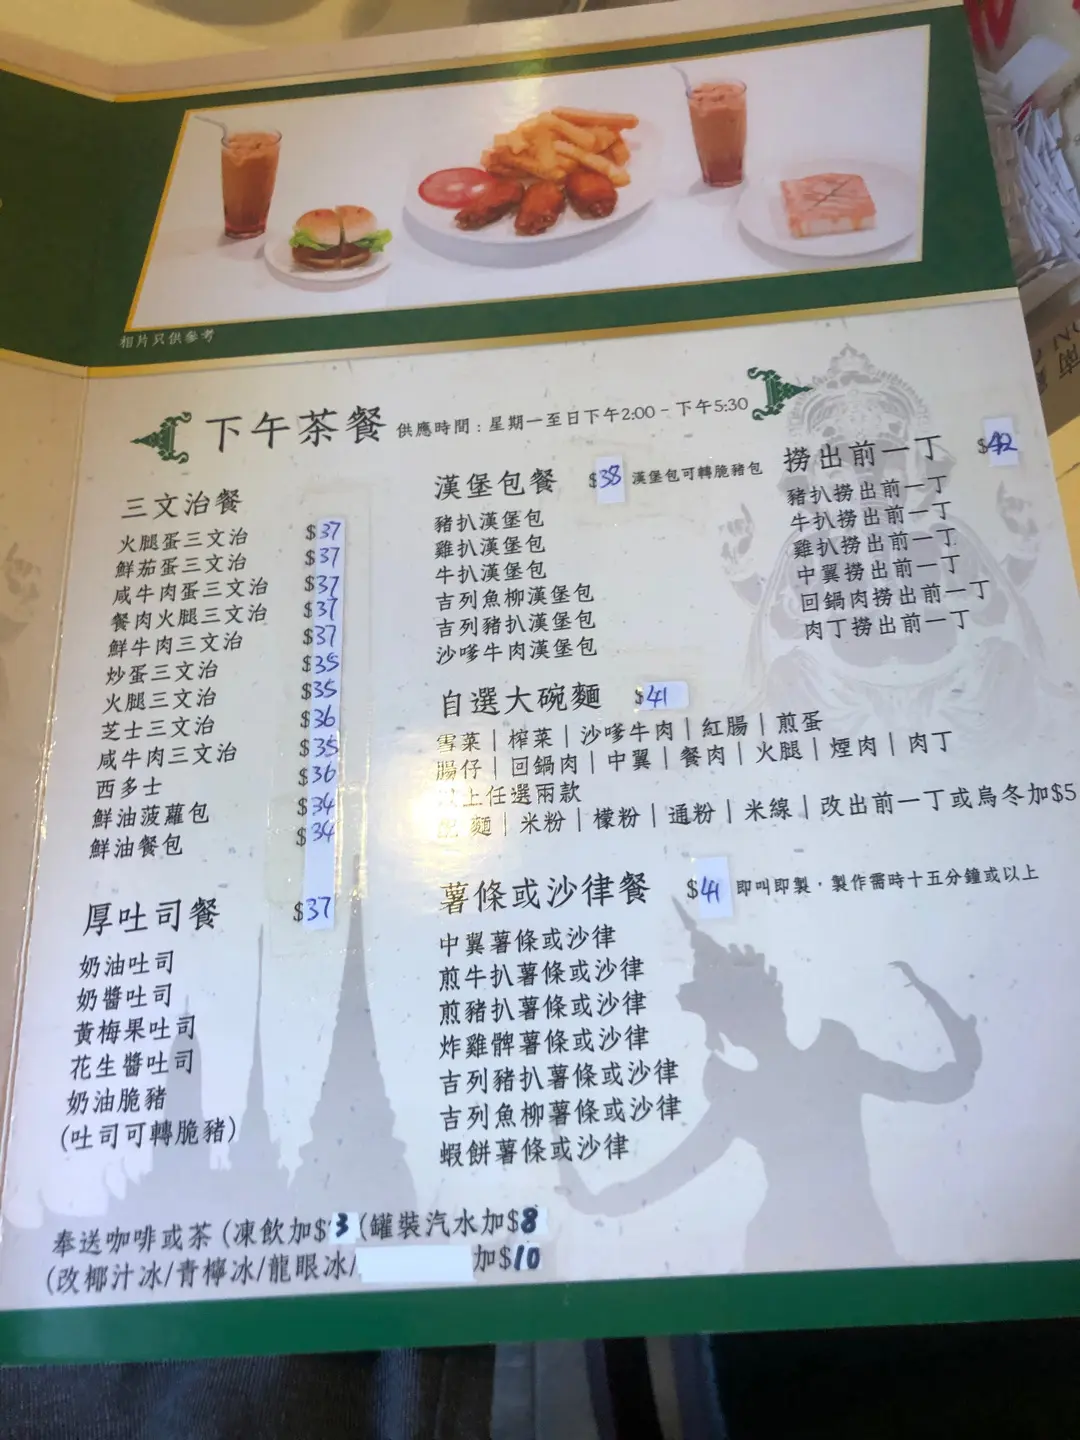 相片只供參考
下午茶餐 供應時間：星期一至日下午2:00 - 下午5:30
三文治餐
火腿蛋三文治 $37
鮮茄蛋三文治 $37
咸牛肉蛋三文治 $37
餐肉火腿三文治 $37
鮮牛肉三文治 $37
炒蛋三文治 $35
火腿三文治 $35
芝士三文治 $36
咸牛肉三文治 $35
西多士 $36
鮮油菠蘿包 $34
鮮油餐包 $34
厚吐司餐 $37
奶油吐司
奶醬吐司
黃梅果吐司
花生醬吐司
奶油脆豬
(吐司可轉脆豬)
漢堡包餐 $38 漢堡包可轉脆豬包
豬扒漢堡包
雞扒漢堡包
牛扒漢堡包
吉列魚柳漢堡包
吉列豬扒漢堡包
沙嗲牛肉漢堡包
撈出前一丁 $42
豬扒撈出前一丁
牛扒撈出前一丁
雞扒撈出前一丁
中翼撈出前一丁
回鍋肉撈出前一丁
肉丁撈出前一丁
自選大碗麵 $41
雪菜 | 榨菜 | 沙嗲牛肉 | 紅腸 | 煎蛋
腸仔 | 回鍋肉 | 中翼 | 餐肉 | 火腿 | 煙肉 | 肉丁
以上任選兩款
麵 | 米粉 | 檬粉 | 通粉 | 米線 | 改出前一丁或烏冬加$5
薯條或沙律餐 $41 即叫即製，製作需時十五分鐘或以上
中翼薯條或沙律
煎牛扒薯條或沙律
煎豬扒薯條或沙律
炸雞髀薯條或沙律
吉列豬扒薯條或沙律
吉列魚柳薯條或沙律
蝦餅薯條或沙律
奉送咖啡或茶 (凍飲加$3 (罐裝汽水加$8
(改椰汁冰/青檸冰/龍眼冰/ 加$10